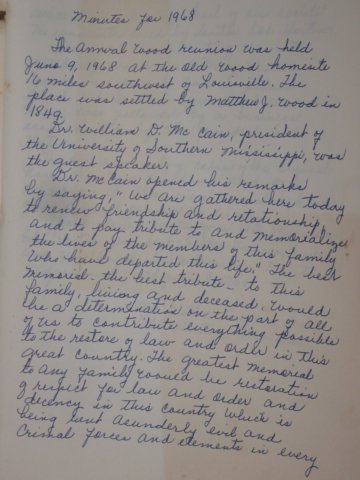 Minutes for 1968
The Annual Wood reunion was held
June 9, 1968 at the old Wood homesite
16 miles southwest of Louisville. The
place was settled by Matthew J. Wood in
1849.
Dr. William D. Mc Cain, president of
the University of Southern Mississippi, was
the guest speaker.
Dr. Mc Cain opened his remarks
by saying, "We are gathered here today
to renew friendship and relationship,
and to pay tribute to and memorialize
the lives of the members of this family
who have departed this life." The best
memorial - the best tribute - to this
family, living and deceased, would
be a determination on the part of all
of us to contribute everything possible
to the restore of law and order in this
great country. The greatest memorial
to any family would be restoration
of respect for law and order and
decency in this country which is
being sent asunder by evil and
crimal forces and elements in every